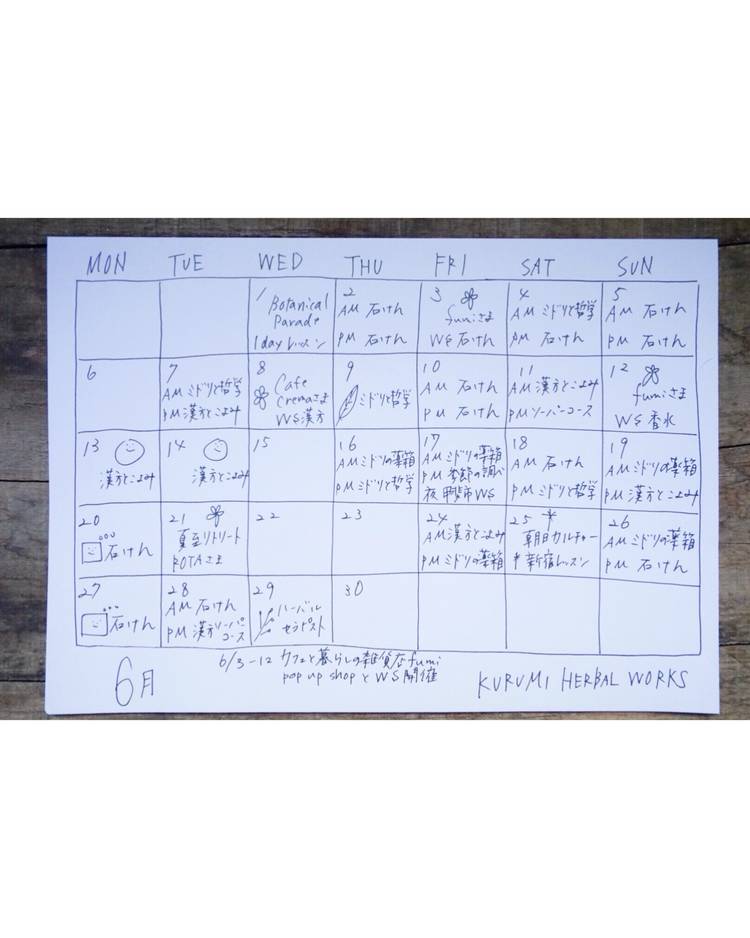 MON TUE WED THU FRI SAT SUN
1 Botanical
Parade
1day レッスン
2
AM 石けん
PM 石けん
3
fumiさま
WS 石けん
4
AM ミドリと哲学
PM 石けん
5
AM 石けん
PM 石けん
6
7
AM ミドリと哲学
PM 漢方とこよみ
8
Cafe
Cremaさま
WS 漢方
9
ミドリと哲学
10
AM 石けん
PM 石けん
11
AM 漢方とこよみ
PM リーパーコース
12
fumiさま
WS 香水
13
漢方とこよみ
14
漢方とこよみ
15
16
AM ミドリの薬箱
PM ミドリと哲学
17
AM ミドリの薬箱
PM 季節の調べ
夜 WS
18
AM 石けん
PM ミドリと哲学
19
AM ミドリの薬箱
PM 漢方とこよみ
20
石けん
21
夏至リトリート
ROTAさま
22
23
24
AM 漢方とこよみ
PM ミドリの薬箱
25
朝日カルチャー
新宿レッスン
26
AM ミドリの薬箱
PM 石けん
27
石けん
28
AM 石けん
PM 漢方リーパー
コース
29
ハーバル
セラピスト
30
6月
6/3-12 カフェと暮らしの雑貨店fumi
pop up shop と WS開催
KURUMI HERBAL WORKS